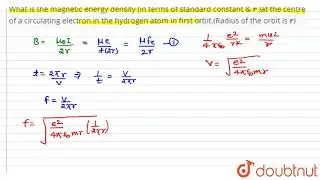 What is the magnetic energy density (in terms of standard constant & r )at the centre
of a circulating electron in the hydrogen atom in first orbit.(Radius of the orbit is r)
B = μ₀I/2r = μ₀e/t(2r) = μ₀fe/2r —①
1/4πε₀ e²/r² = mv²/r
t = 2πr/v ⇒ 1/t = v/2πr
v = √(e²/4πε₀mr)
f = v/2πr
f = √(e²/4πε₀mr) (1/2πr)
doubtnut